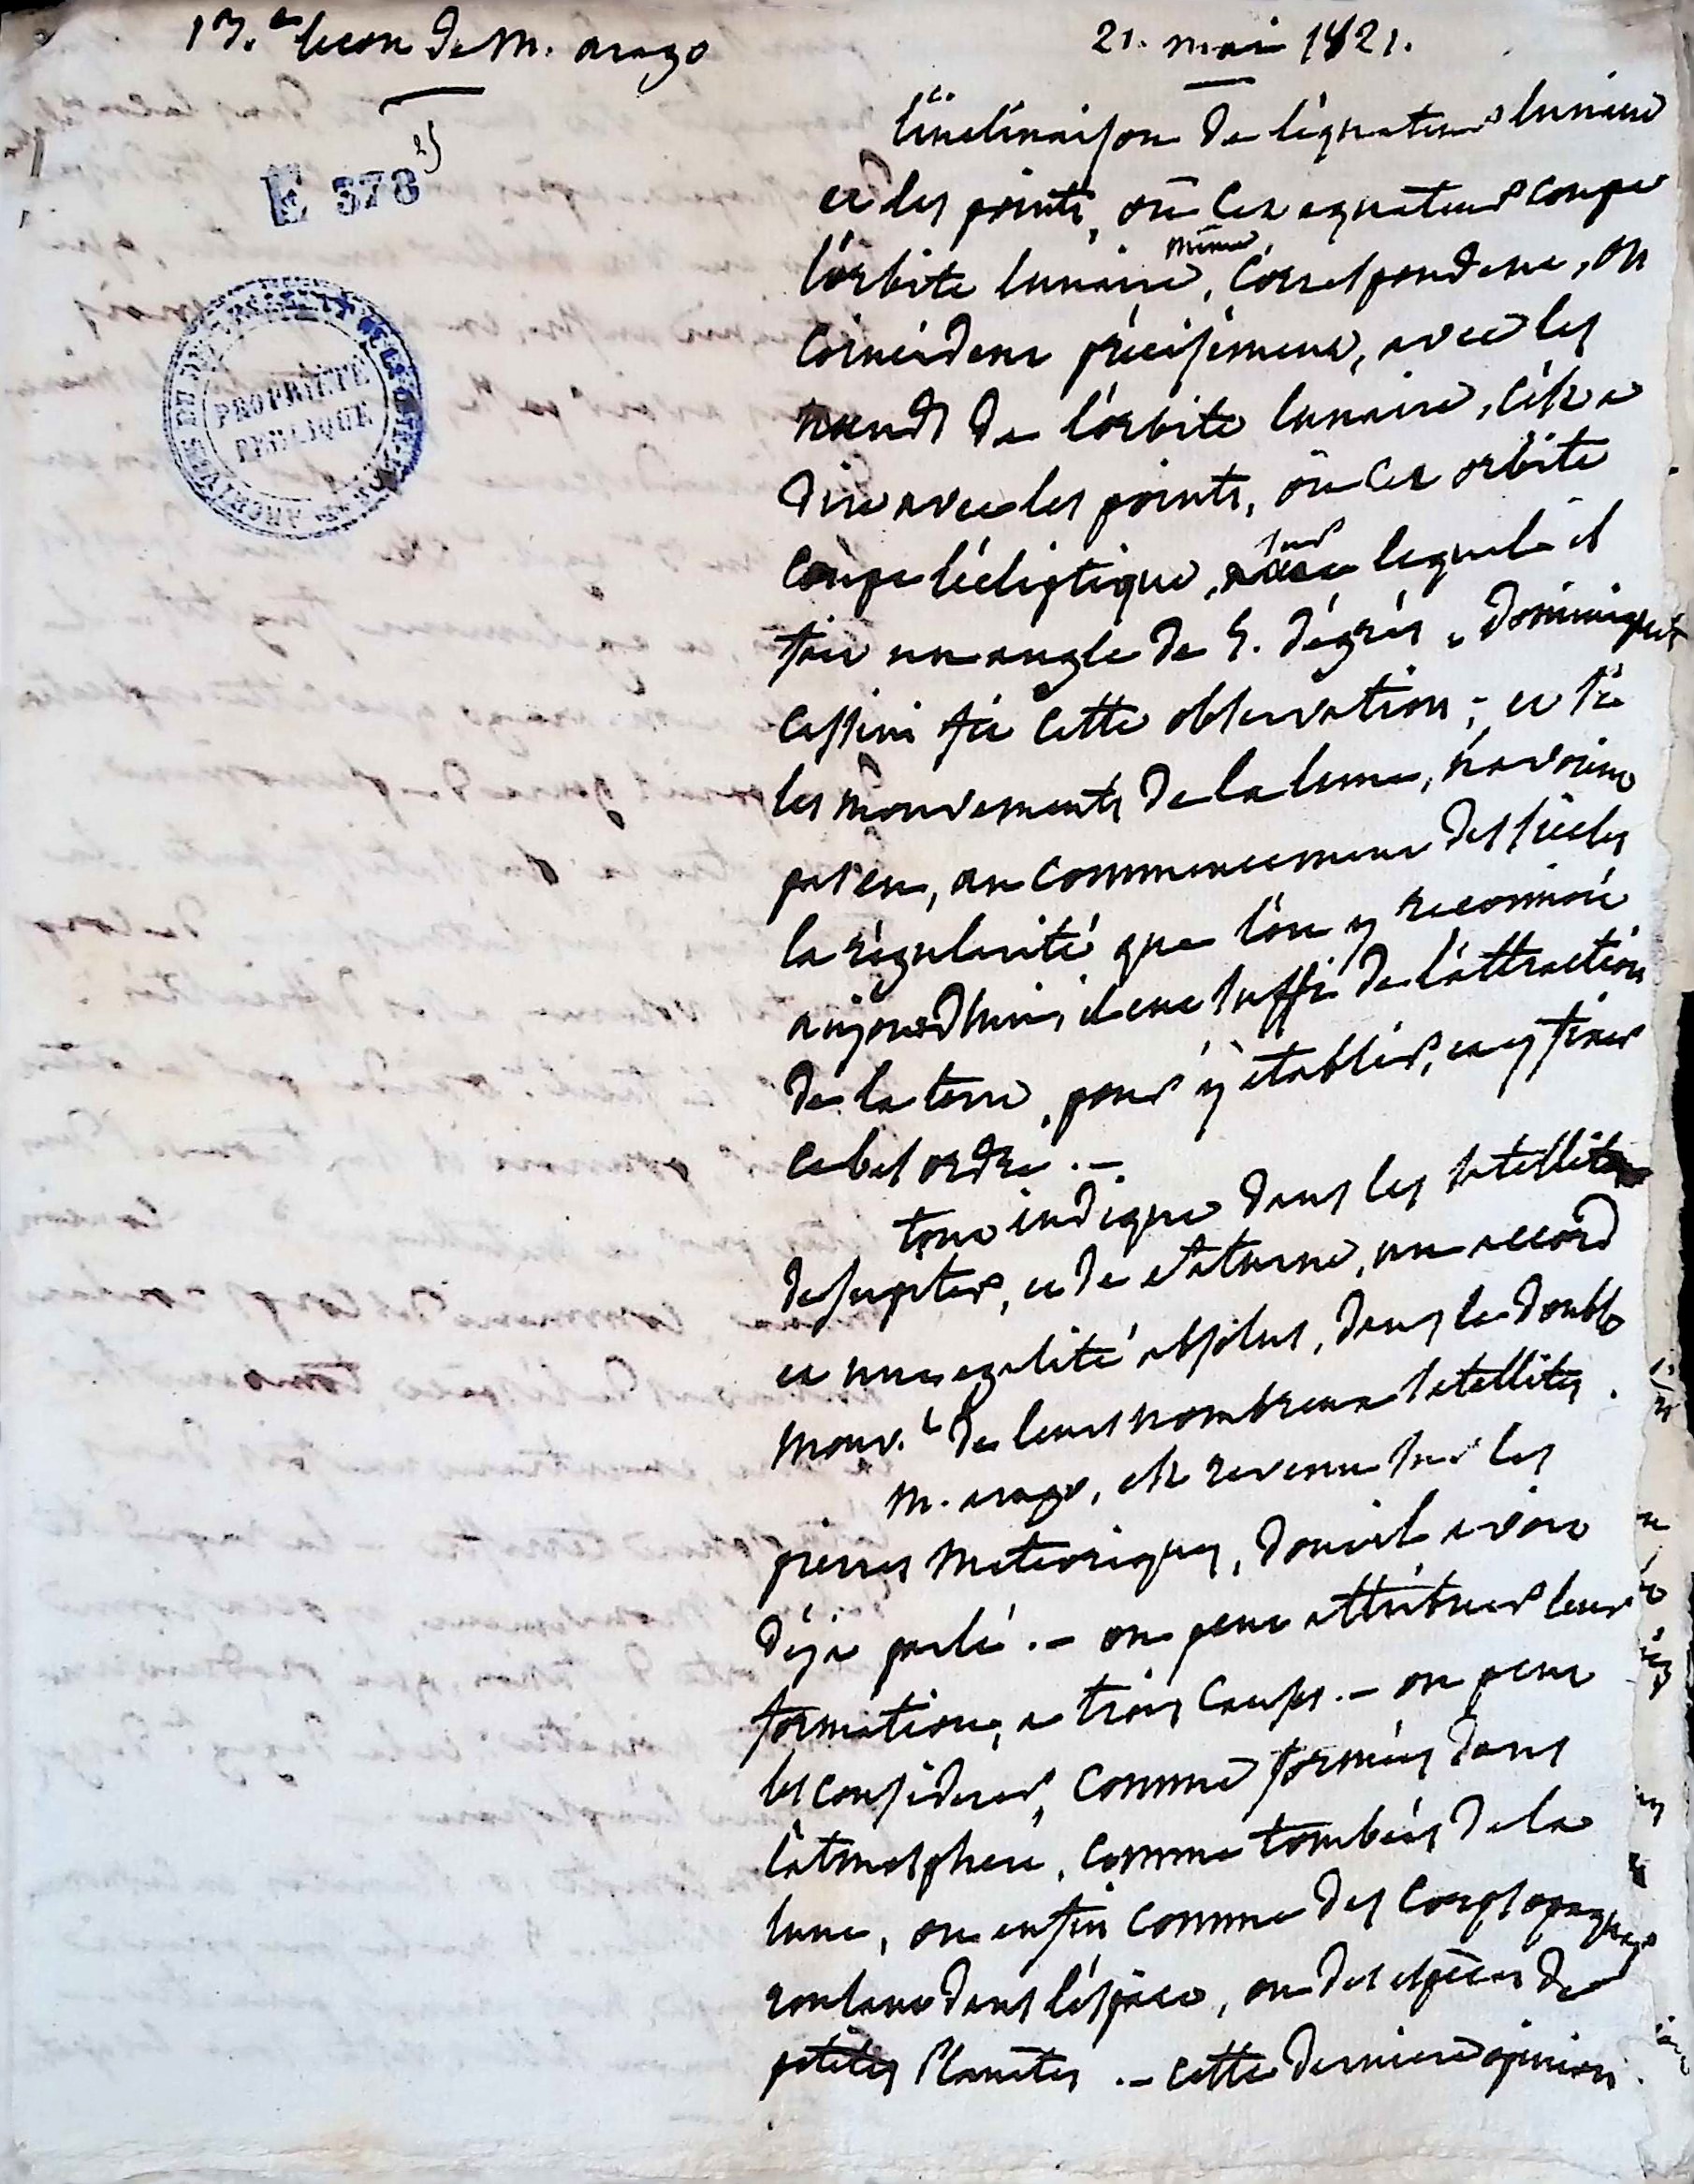 17.e leçon de M. arago
21. mai 1821.
E 378 25
PROPRIÉTÉ
PUBLIQUE
ARCHIVES DU
l'inclinaison de l'équateur lunaire
et les points, où cet equateur coupe
l'orbite lunaire, même, correspondent, ou
coïncident précisément, avec les
nœuds de l'orbite lunaire, c'est a
dire avec les points, où cet orbite
coupe l'écliptique, sur laquelle il
fait un angle de 5. dégrés. Dominique
Cassini fit cette observation; et si
les mouvements de la lune, n'avoient
pas eu, au commencement des siècles
la régularité que l'on y reconnoit
aujourd'hui, il eut suffi de l'attraction
de la terre, pour y établir, et y fixer
ce bel ordre. —
tout indique dans les satellites
de Jupiter, et de saturne, un accord
et une egalité absolus, dans le double
mouv.t de leurs nombreux satellites.
M. arago, est revenu sur les
pierres meteoriques, dont il avoit
déja parlé. — on peut attribuer leur
formation, a trois causes. — on peut
les considerer, comme formées dans
l'atmosphere, comme tombées de la
lune, ou enfin comme des corps opaques
roulant dans l'éspace, ou des espèces de
petites Planètes. — cette derniere opinion